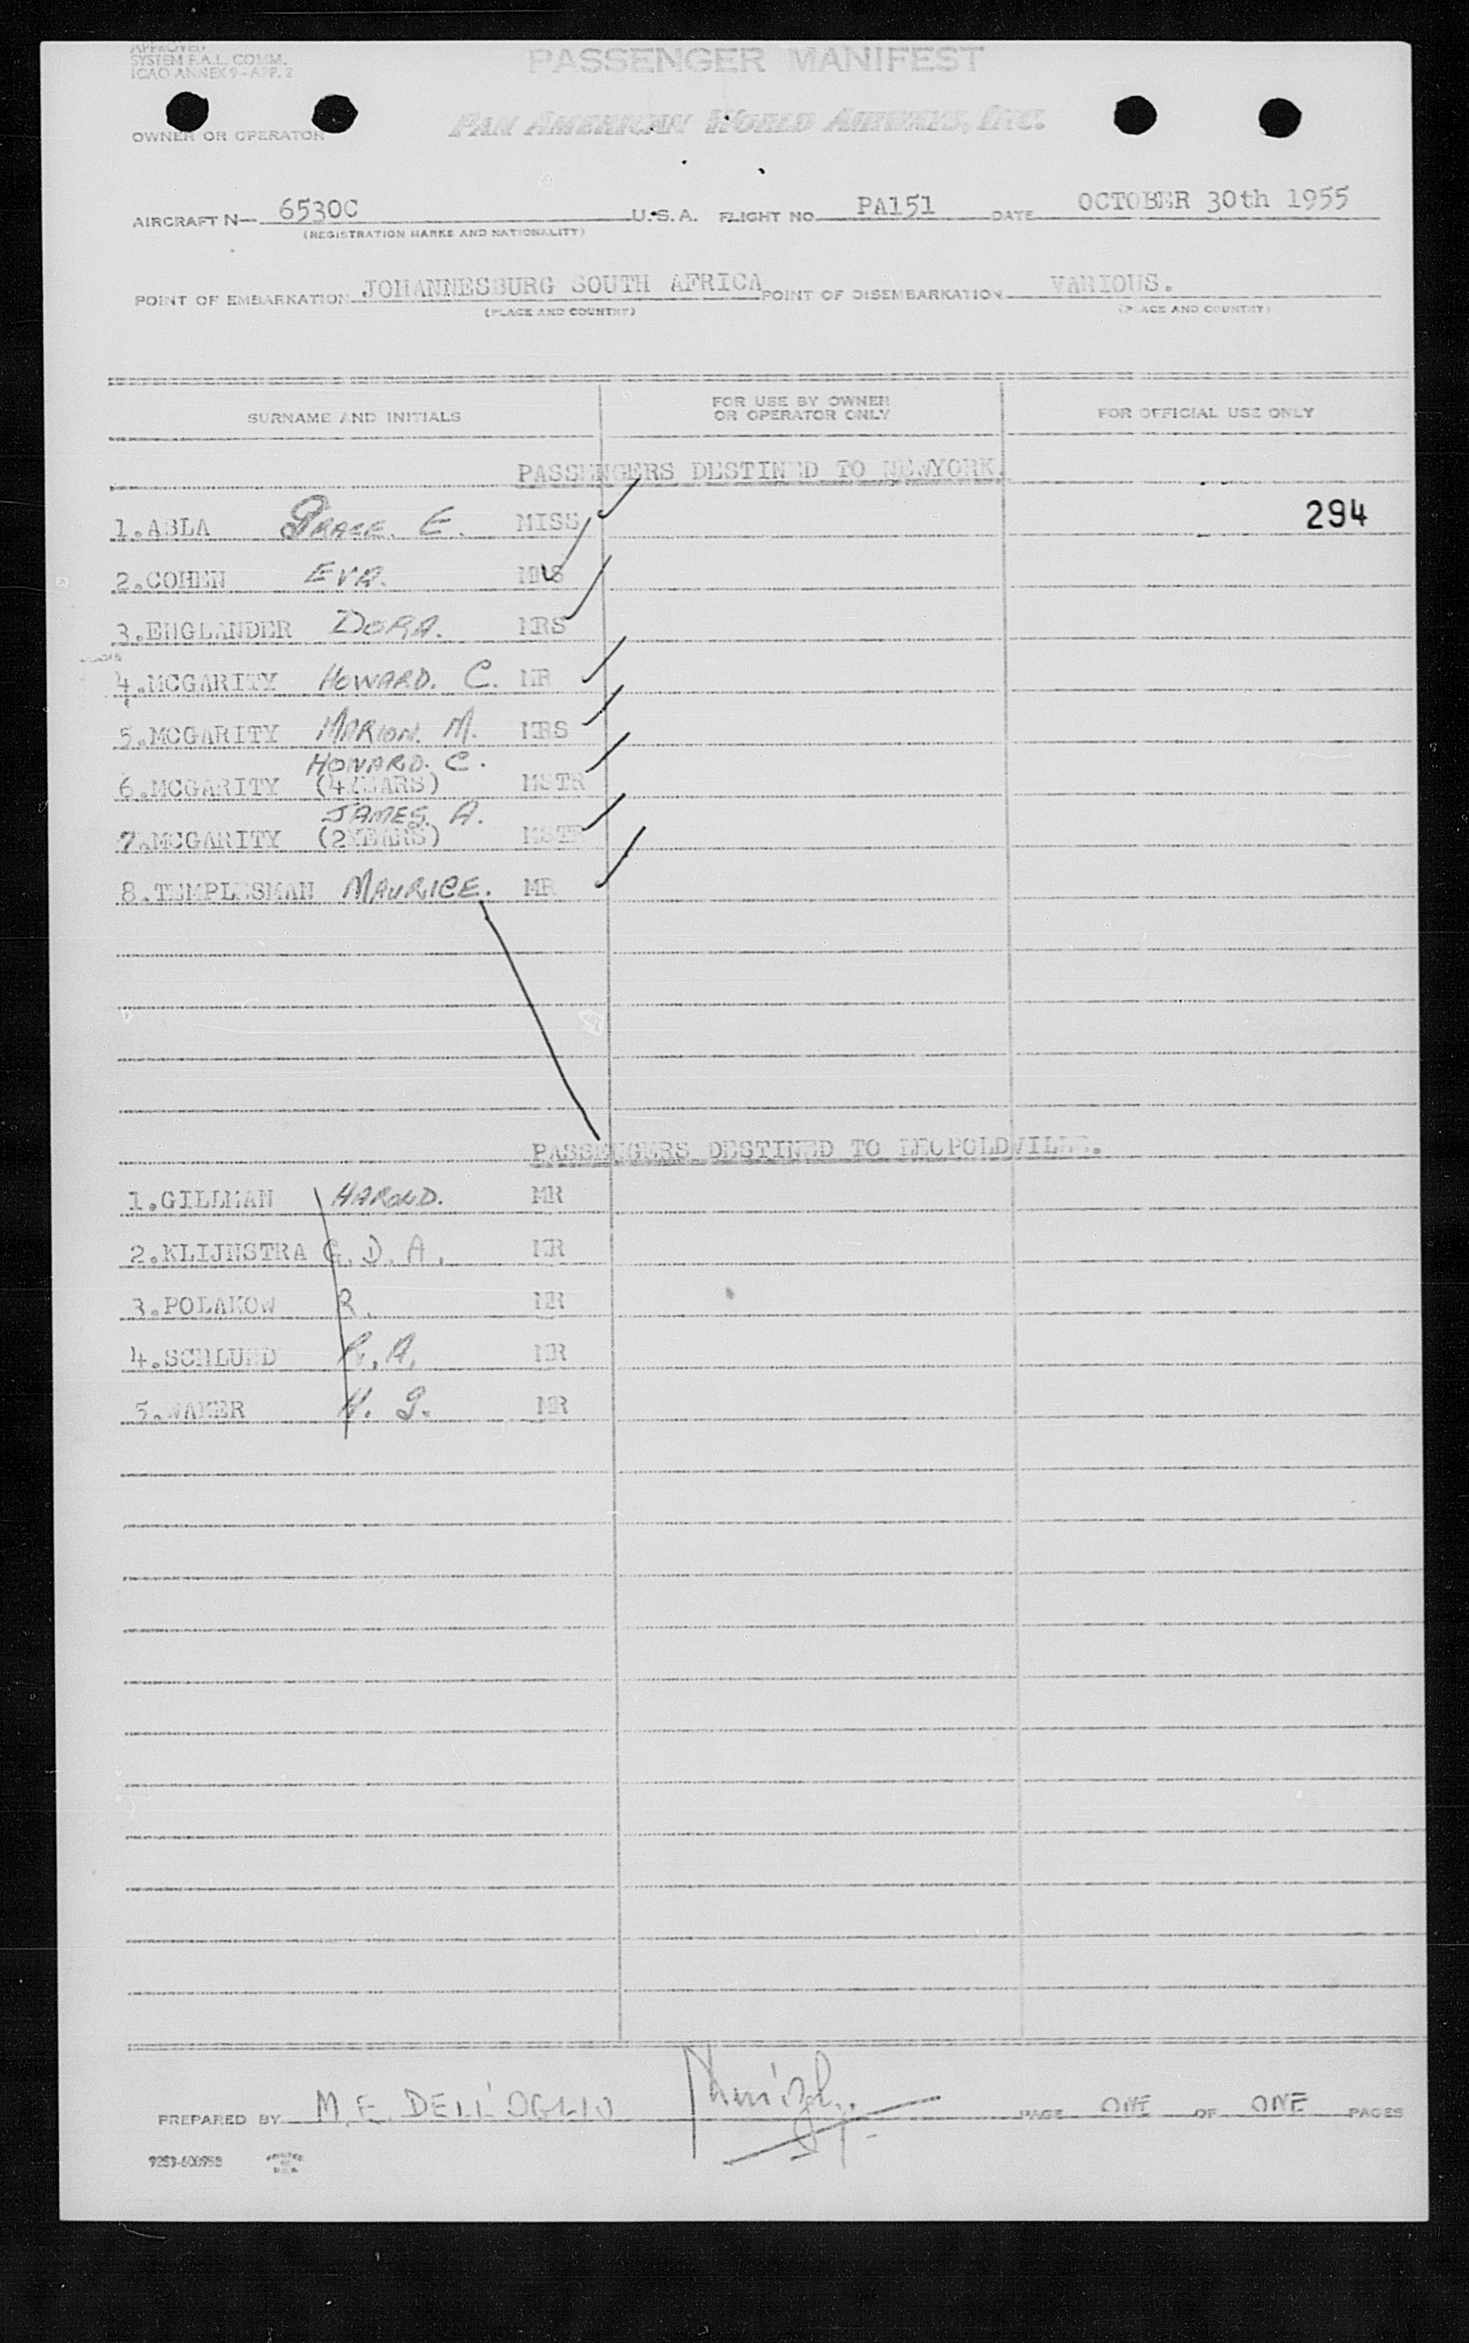 APPROVED
SYSTEM F.A.L. COMM.
ICAO ANNEX 9-APP. 2
PASSENGER MANIFEST
OWNER OR OPERATOR PAN AMERICAN WORLD AIRWAYS, INC.
AIRCRAFT N— 6530C U.S.A. FLIGHT NO. PA151 DATE OCTOBER 30th 1955
(REGISTRATION MARKS AND NATIONALITY)
POINT OF EMBARKATION JOHANNESBURG SOUTH AFRICA POINT OF DISEMBARKATION VARIOUS.
(PLACE AND COUNTRY) (PLACE AND COUNTRY)
SURNAME AND INITIALS FOR USE BY OWNER OR OPERATOR ONLY FOR OFFICIAL USE ONLY
PASSENGERS DESTINED TO NEWYORK.
1.ABLA GRACE. E. MISS 294
2.COHEN EVA. MRS
3.ENGLANDER DORA. MRS
4.MCGARITY HOWARD. C. MR
5.MCGARITY MARION. M. MRS
HOWARD. C.
6.MCGARITY (4YEARS) MSTR
JAMES. A.
7.MCGARITY (2YEARS) MSTR
8.TEMPLESMAN MAURICE. MR
PASSENGERS DESTINED TO LEOPOLDVILLE.
1.GILLMAN HAROLD. MR
2.KLIJNSTRA G. D. A. MR
3.POLAKOW R. MR
4.SCHLUND A. MR
5.WAKER MR
PREPARED BY M.E. DELL'OGLIO PAGE ONE OF ONE PAGES
PRINTED
IN
U.S.A.